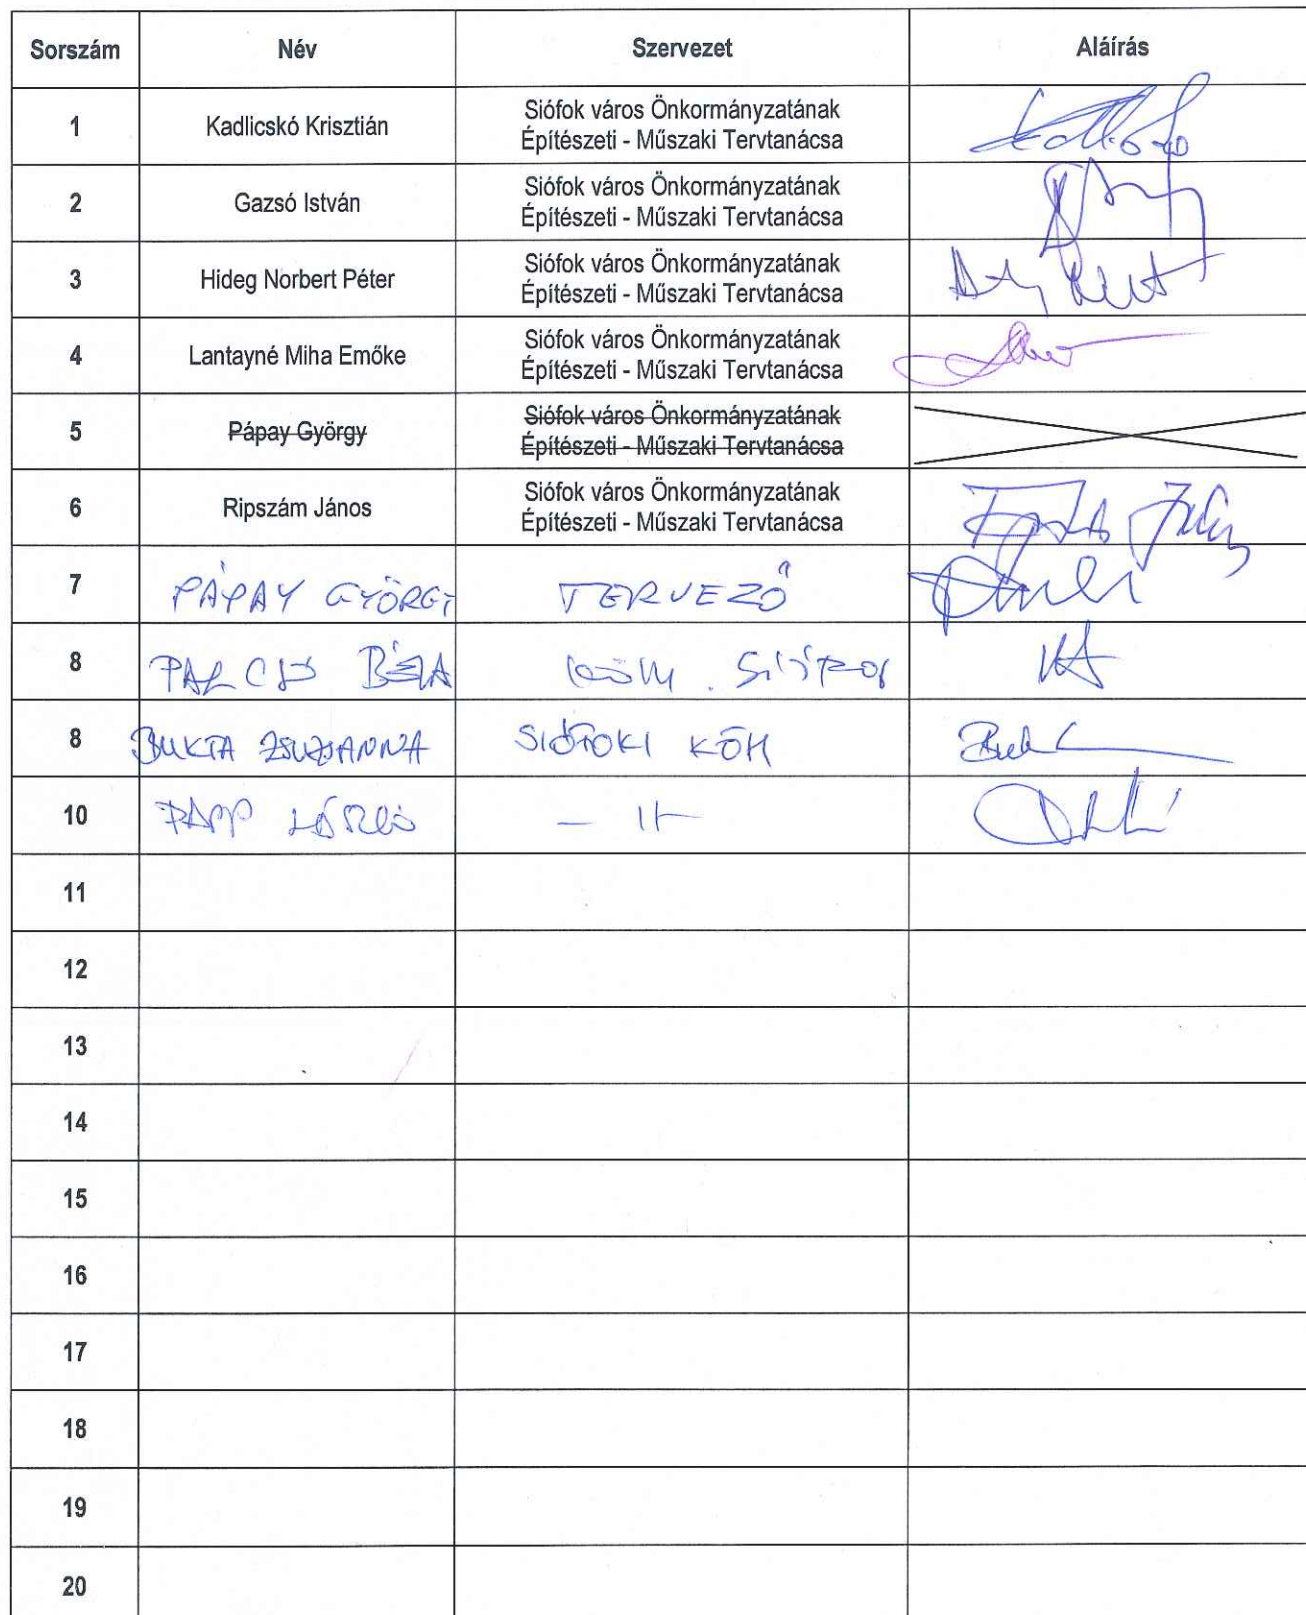 Sorszám Név Szervezet Aláírás
1 Kadlicskó Krisztián Siófok város Önkormányzatának
Építészeti - Műszaki Tervtanácsa
2 Gazsó István Siófok város Önkormányzatának
Építészeti - Műszaki Tervtanácsa
3 Hideg Norbert Péter Siófok város Önkormányzatának
Építészeti - Műszaki Tervtanácsa
4 Lantayné Miha Emőke Siófok város Önkormányzatának
Építészeti - Műszaki Tervtanácsa
5 Pápay György Siófok város Önkormányzatának
Építészeti - Műszaki Tervtanácsa
6 Ripszám János Siófok város Önkormányzatának
Építészeti - Műszaki Tervtanácsa
7 PÁPAY GYÖRGY TERVEZŐ
8 BÉLA
8 BUKTA ZSUZSANNA SIÓFOKI KÖH
10 PAPP LÁSZLÓ - 11 -
11
12
13
14
15
16
17
18
19
20